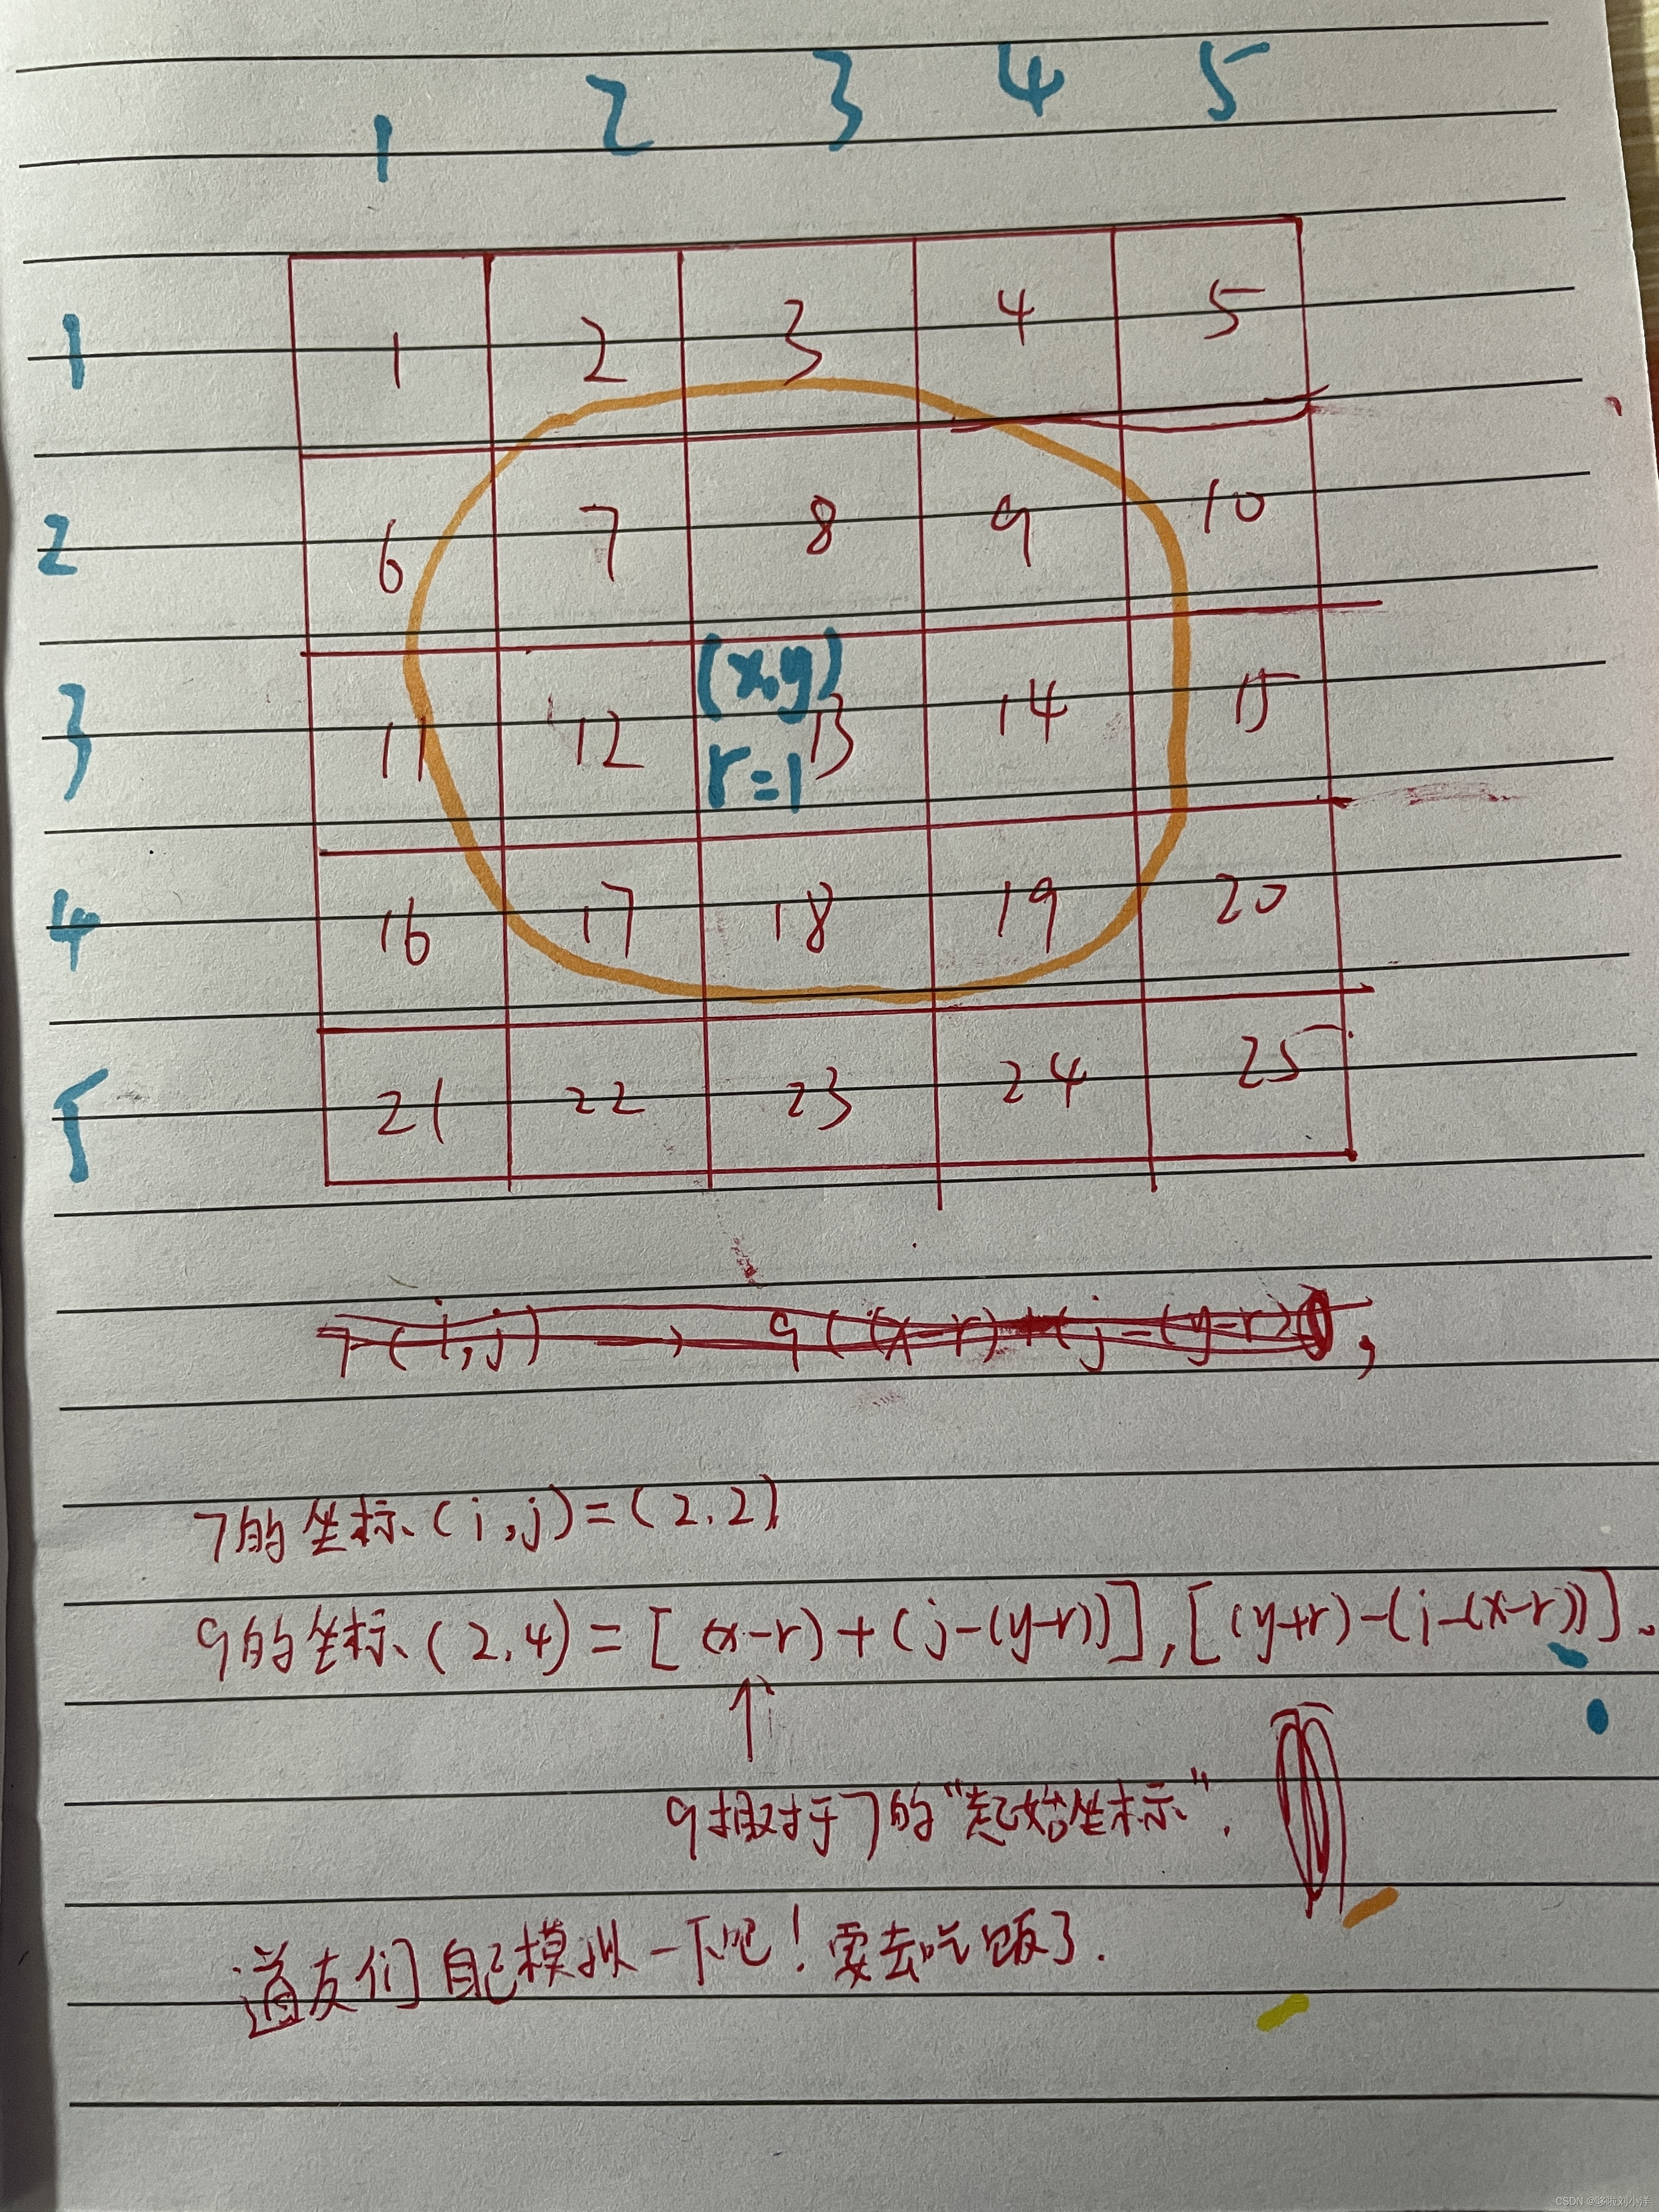 1 2 3 4 5
1 1 2 3 4 5
2 6 7 8 9 10
(x,y)
3 11 12 13 14 15
r=1
4 16 17 18 19 20
5 21 22 23 24 25
7(i,j) → 9((x-r)+(j-(y-r)),
7的坐标(i,j)=(2,2)
9的坐标(2,4)=[(x-r)+(j-(y-r))],[(y+r)-(i-(x-r))].
↑
9相对于7的"起始坐标".
道友们自己模拟一下吧!要去吃饭了.
CSDN @哆啦刘小洋